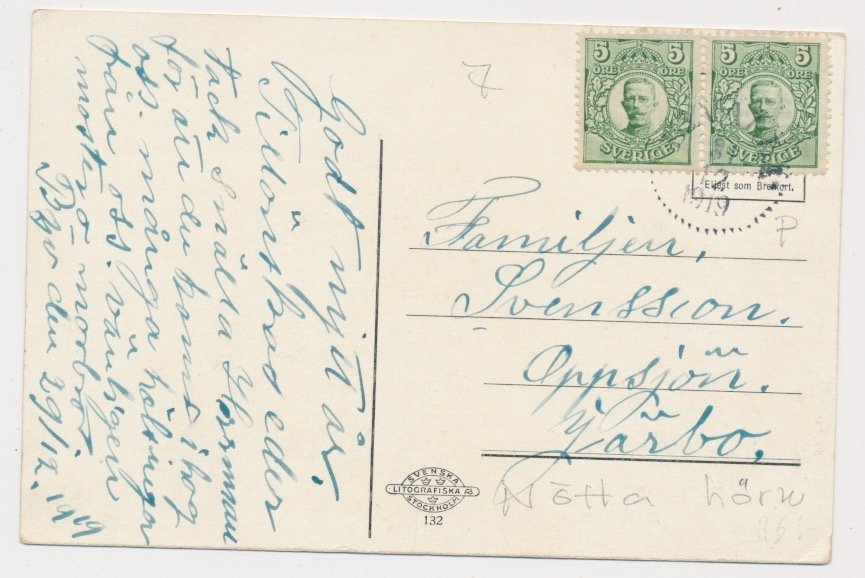 Godt nytt år.
Tillönskas eder
tack snälla Herrman
för att du kom i hog
oss. många hälsningar
från oss. vänligen
moster o morbror
den 29/12. 1919
5 5
ÖRE ÖRE
SVERIGE
5 5
ÖRE ÖRE
SVERIGE
12
1919
Endast som Brefkort.
7
P
Familjen,
Svenssion.
Oppsjön.
Järbo,
SVENSKA
LITOGRAFISKA AB
STOCKHOLM
132
Nötta hörn
25.-